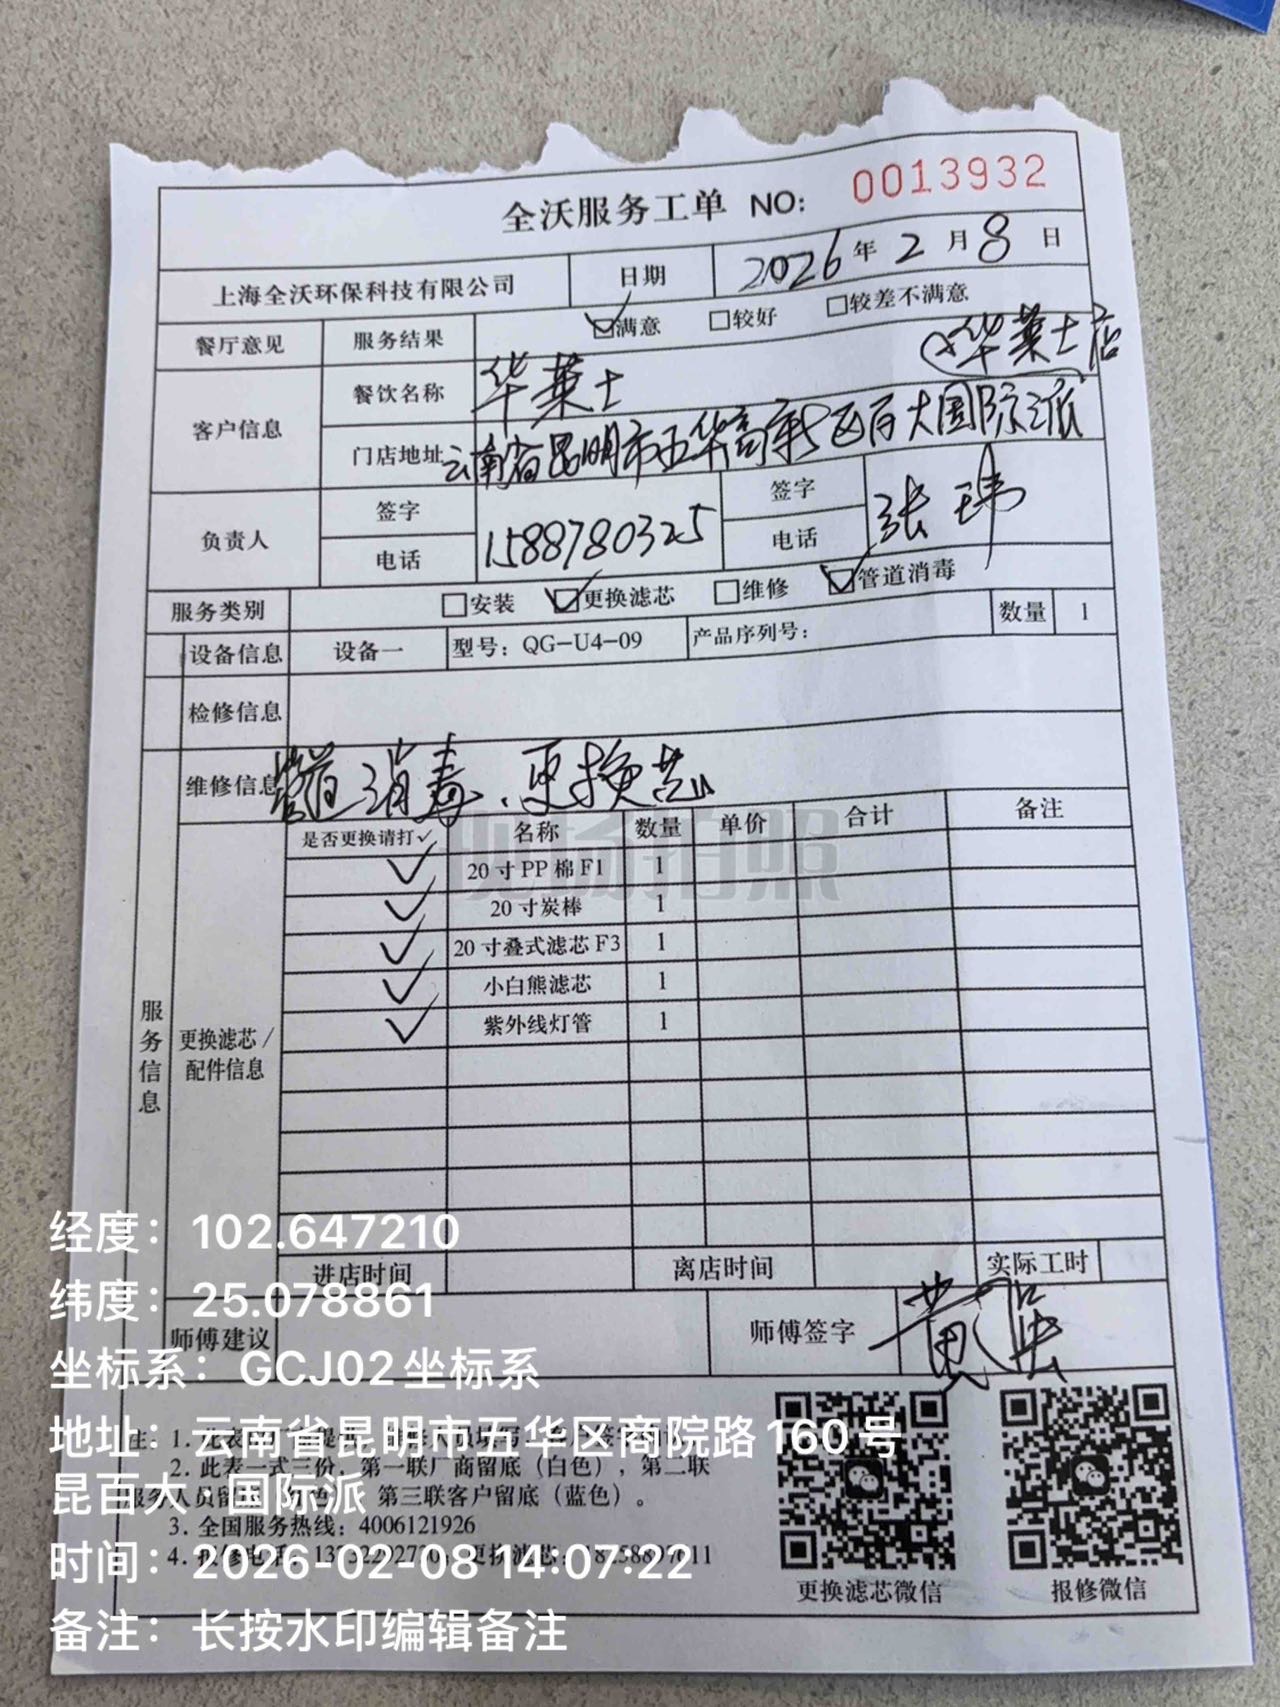 全沃服务工单 NO: 0013932
上海全沃环保科技有限公司 日期 2026年2月8日
餐厅意见 服务结果 ☑满意 □较好 □较差不满意
客户信息 餐饮名称 华莱士 华莱士店
门店地址 云南省昆明市五华高新区百大国际派
负责人 签字 签字 张玮
电话 15887803255 电话
服务类别 □安装 ☑更换滤芯 □维修 ☑管道消毒
设备信息 设备一 型号：QG-U4-09 产品序列号： 数量 1
检修信息
维修信息 管道消毒、更换芯
服务信息
更换滤芯/配件信息
是否更换请打✓ 名称 数量 单价 合计 备注
✓ 20寸PP棉F1 1
✓ 20寸炭棒 1
✓ 20寸叠式滤芯F3 1
✓ 小白熊滤芯 1
✓ 紫外线灯管 1
现场拍照
进店时间 离店时间 实际工时
师傅建议 师傅签字 黄
注：1.
2. 此表一式三份，第一联厂商留底（白色），第二联
服务人员留底 第三联客户留底（蓝色）。
3. 全国服务热线：4006121926
4. 报修电话： 更换滤芯：
更换滤芯微信 报修微信
经度：102.647210
纬度：25.078861
坐标系：GCJ02坐标系
地址：云南省昆明市五华区商院路160号
昆百大·国际派
时间：2026-02-08 14:07:22
备注：长按水印编辑备注